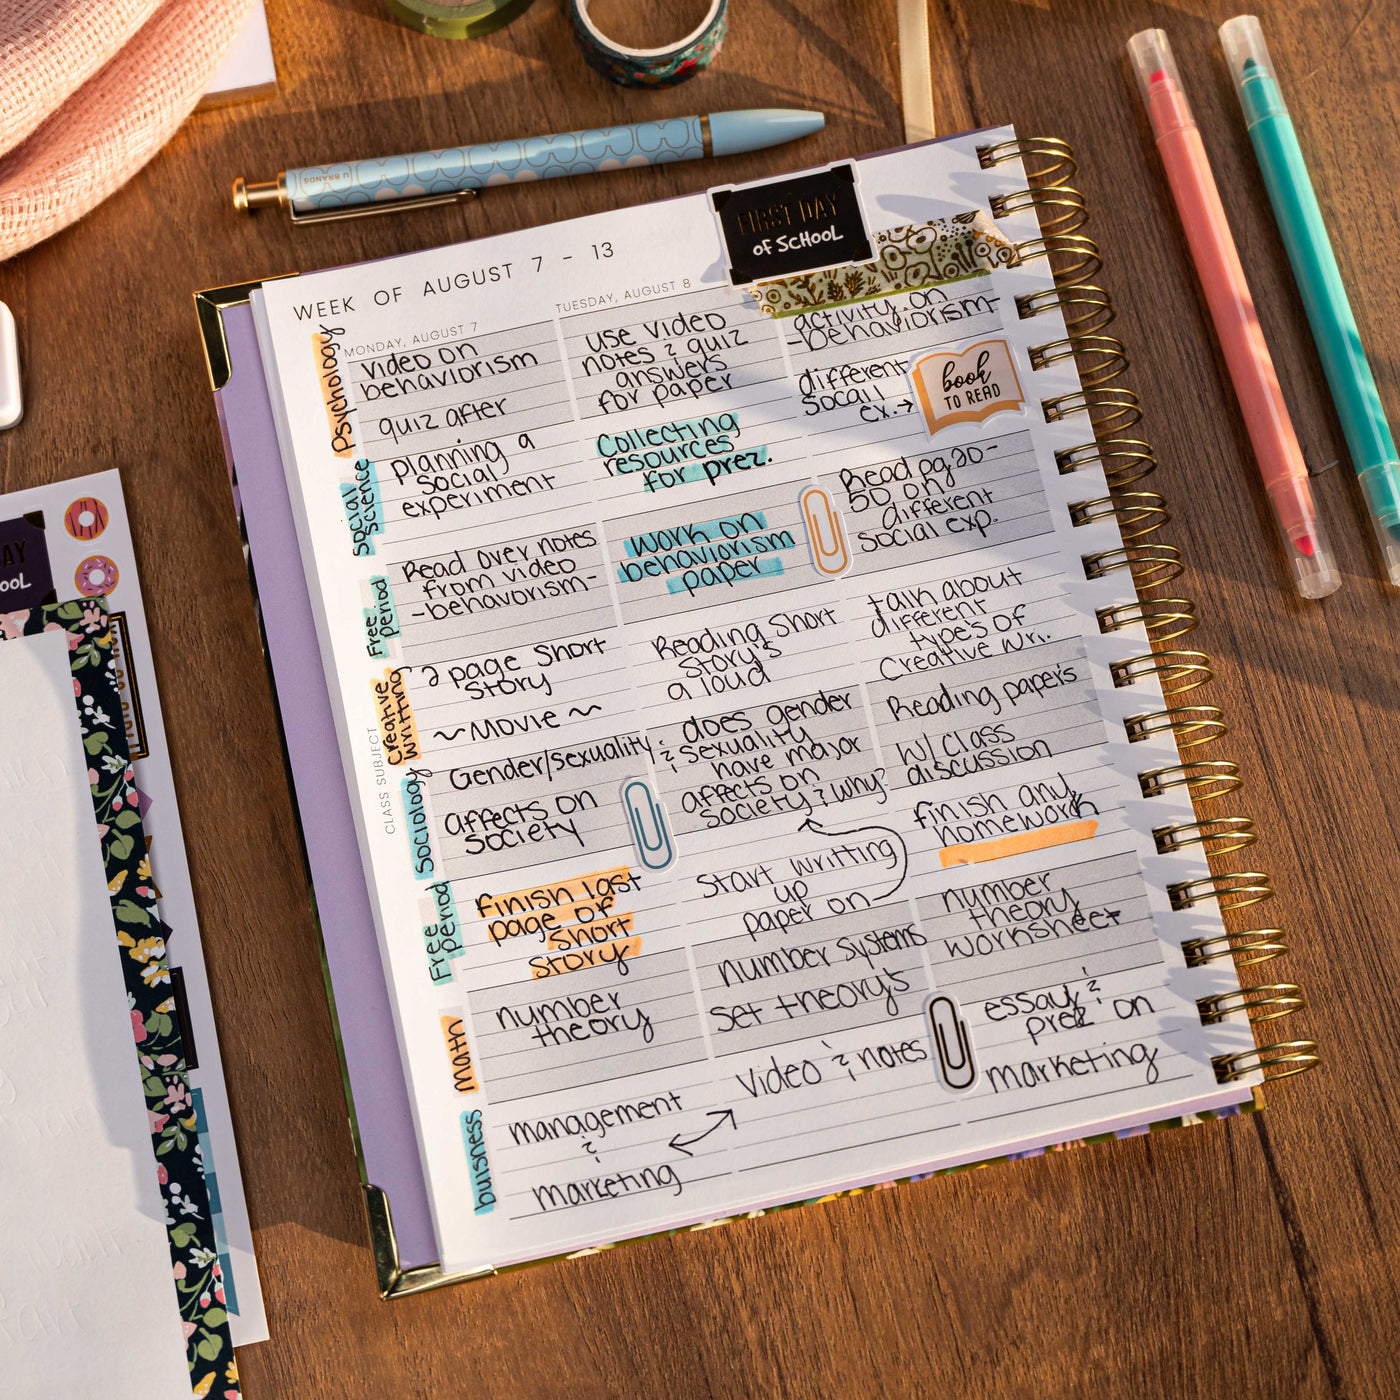 U BRANDS
FIRST DAY
OF SCHOOL
WEEK OF AUGUST 7 - 13
MONDAY, AUGUST 7
TUESDAY, AUGUST 8
CLASS SUBJECT
Psychology
video on
behaviorism
quiz after
use video
notes & quiz
answers
for paper
activity on
-behaviorism-
different
socail
ex.→
book
TO READ
Social
Science
planning a
social
experiment
Collecting
resources
for prez.
Read pg 20-
50 on
different
social exp.
Free
Period
Read over notes
from video
-behavorism-
work on
behaviorism
paper
talk about
different
types of
Creative wri.
Creative
Writting
2 page short
story
~Movie~
Reading short
story's
a loud
Reading paper's
w/ class
discussion
Sociology
Gender/sexuality
affects on
society
does gender
& sexuality
have major
affects on
society & why?
finish any
homework
Free
period
finish last
page of
short
story
Start writting
up
paper on
number
theory
worksheet
Math
number
theory
number systems
set theory's
essay &
prez on
marketing
buisness
management
&
marketing
video & notes
AY
OOL